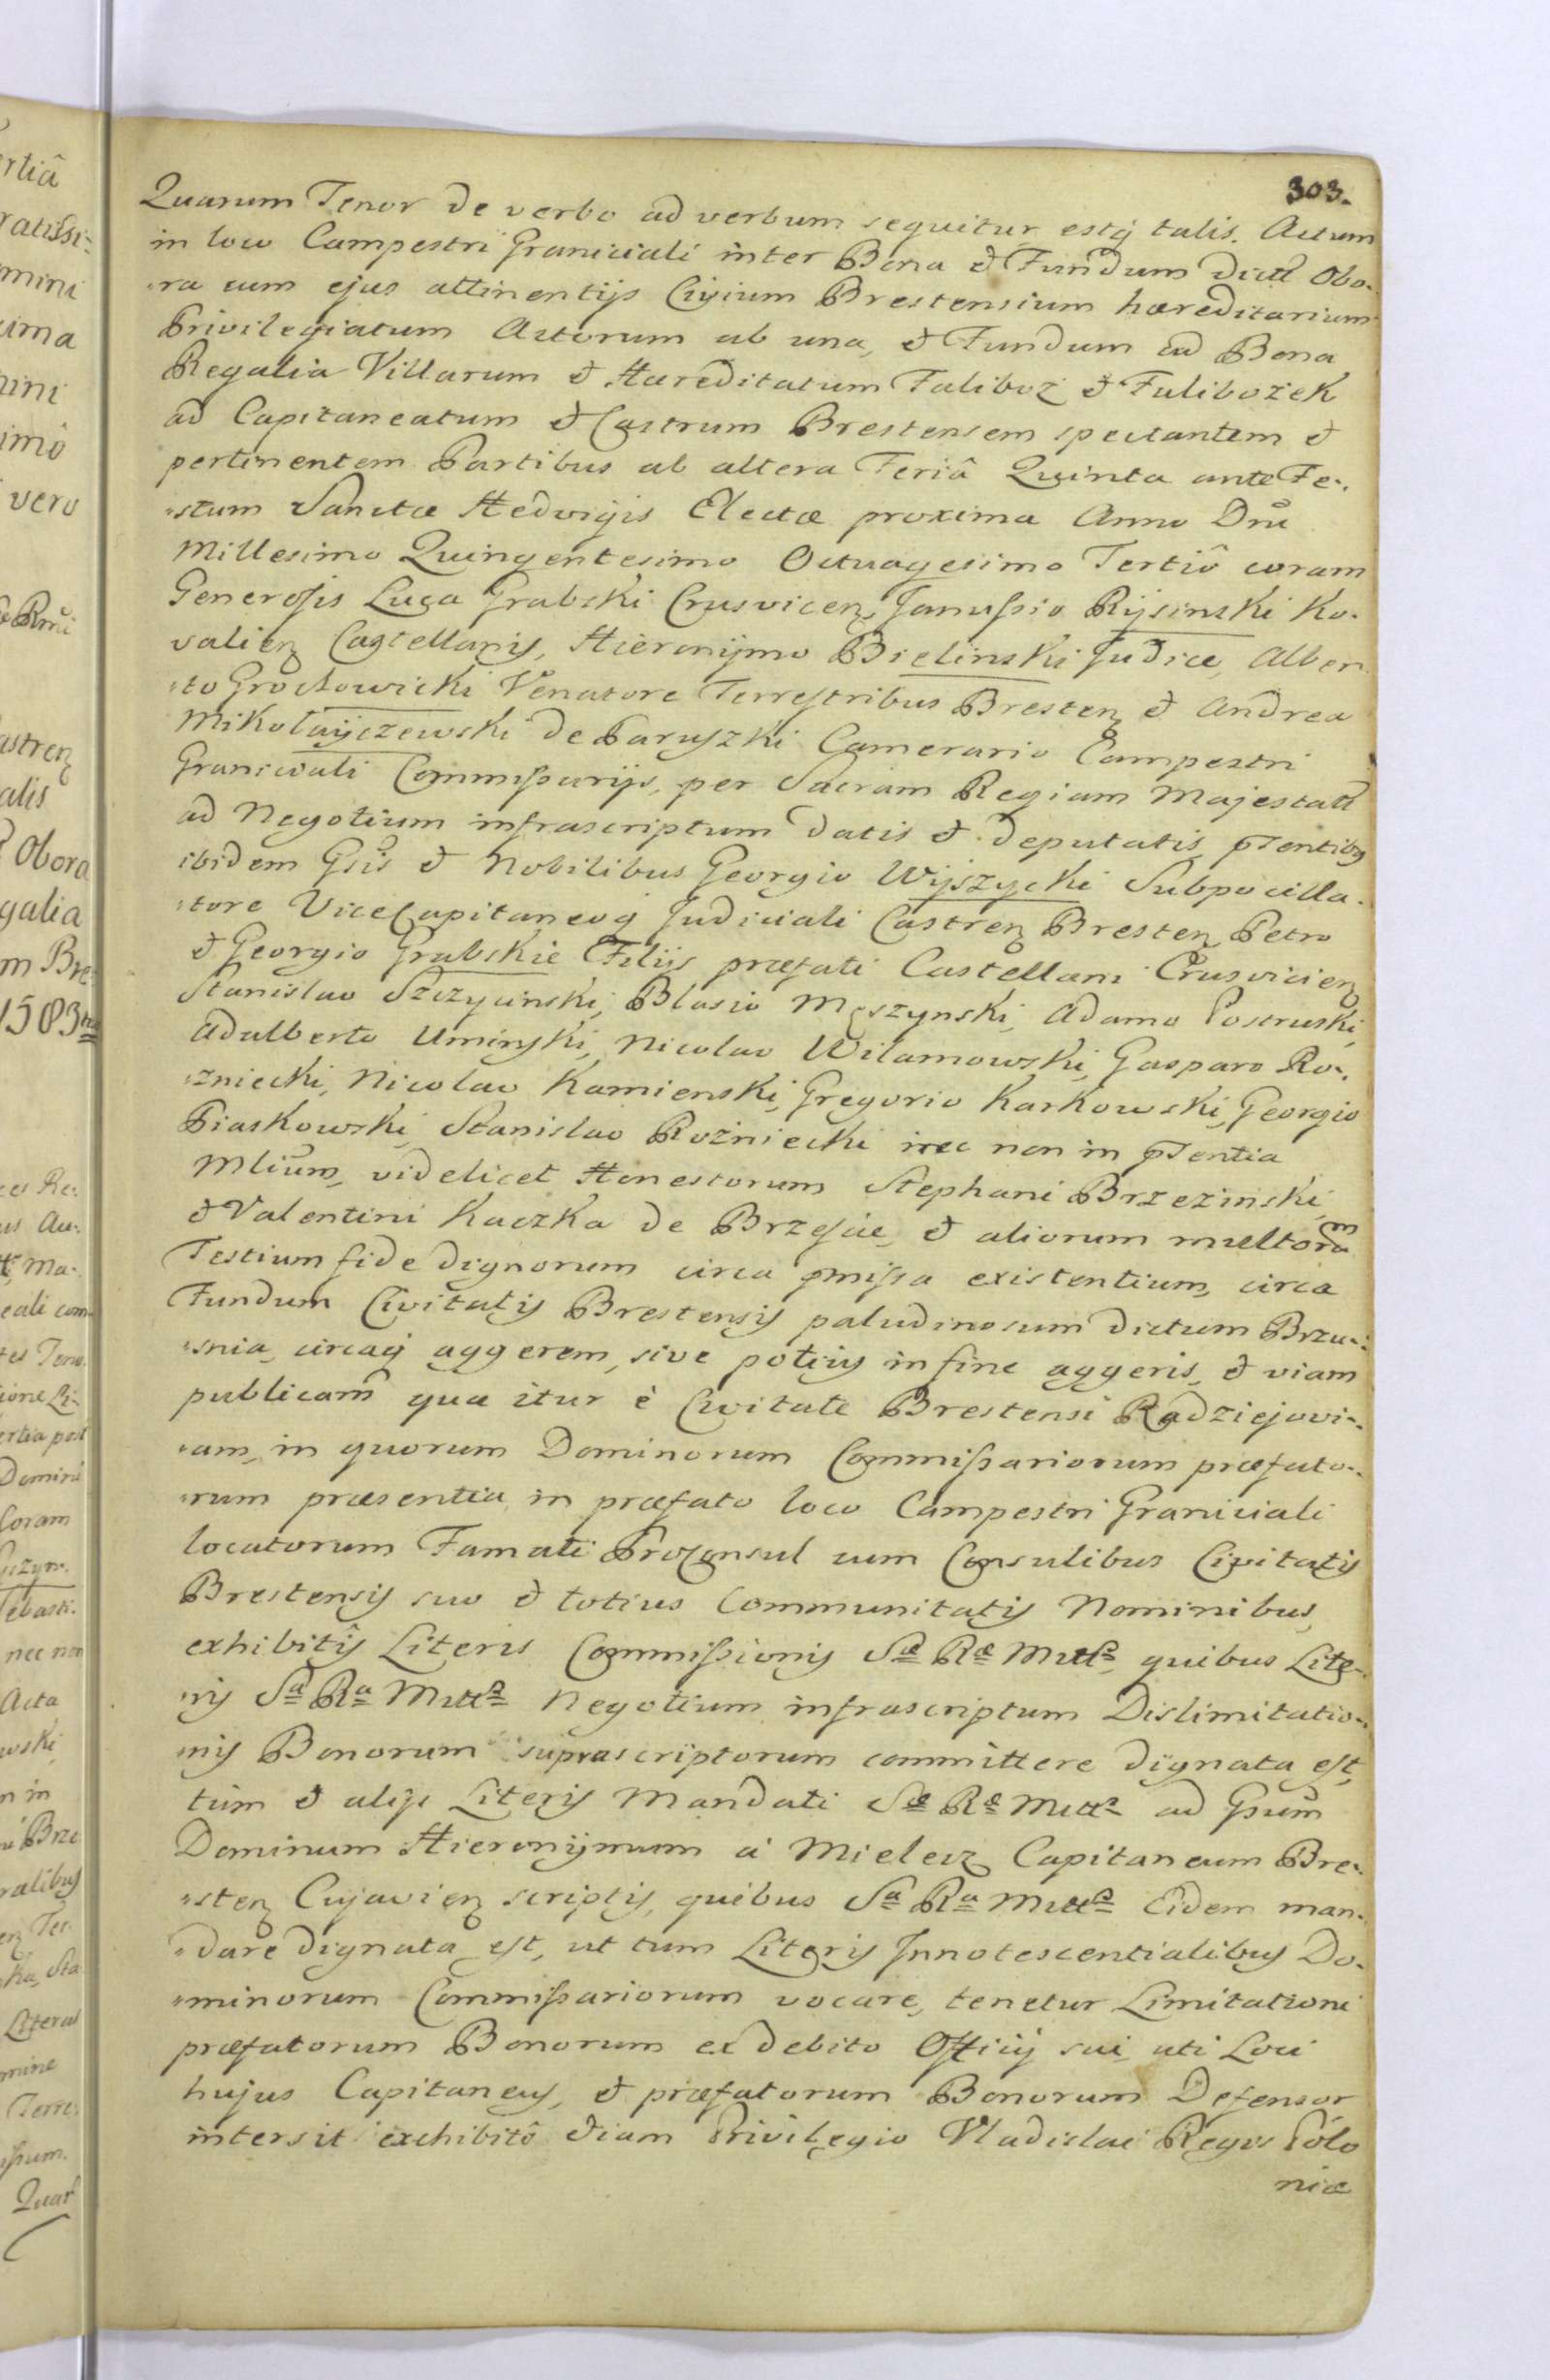 303.
Quarum Tenor de verbo ad verbum sequitur estq talis. Actum
in loco Campestri Graniciali inter Bona & Fundum dict Obo-
ra cum ejus attinentijs Civium Brestensium hæreditarium
Privilegiatum Actorum ab una, & Fundum ad Bona
Regalia Villarum & Hæreditatum Faliboz & Falibozek
ad Capitaneatum & Castrum Brestensem spectantem &
pertinentem Partibus ab altera Feriâ Quinta ante Fe-
stum Sanctæ Hedvigis Electæ proxima Anno Dni
Millesimo Quingentesimo Octuagesimo Tertiô coram
Generosis Luca Grabski Crusvicen, Janussio Rijsinski Ko-
valien Castellanis, Hieronijmo Bielinski Judice, Alber-
to Grochowicki Venatore Terrestribus Bresten & Andrea
Mikołaijczewski de Paruszki Camerario Campestri
Graniciali Commissarijs, per Sacram Regiam Majestatt
ad Negotium infrascriptum datis & deputatis pntentibus
ibidem Gsis & Nobilibus Georgio Wijszycki Subpocilla-
tore ViceCapitaneoq Judiciali Castren Bresten Petro
& Georgio Grabskie Filijs præfati Castellani Crusvicien
Stanislao Szczycinski, Blasio Męszynski, Adamo Postruski,
Adalberto Uminski, Nicolao Wilamowski, Gasparo Ro-
zniecki, Nicolao Kamienski, Gregorio Karkowski, Georgio
Piaskowski, Stanislao Rożniecki nec non in pntentia
Mlium, videlicet Honestorum Stephani Brzezinski,
& Valentini Kaczka de Brzescie, & aliorum multorum
Testium fide dignorum circa pmissa existentium, circa
Fundum Civitatis Brestensis paludinosum dictum Brzu-
snia, circaq aggerem, sive potius in fine aggeris, & viam
publicam qua itur è Civitate Brestensi Radziejovi-
am, in quorum Dominorum Commissariorum præfato-
rum præsentia, in præfato loco Campestri Graniciali
locatorum Famati Proconsul cum Consulibus Civitatis
Brestensis suo & totius Communitatis Nominibus,
exhibitis Literis Commissionis Sæ Ræ Mttis, quibus Lite-
ris Sa Ra Mttis Negotium infrascriptum Dislimitatio-
nis Bonorum suprascriptorum committere dignata est,
tum & alijs Literis Mandati Sæ Ræ Mttis ad Gsum
Dominum Hieronijmum à Mielecz Capitaneum Bre-
sten Cujavien scriptis, quibus Sa Ra Mttis Eidem man-
dare dignata est, ut tum Literis Innotescentialibus Do-
minorum Commissariorum vocare, tenetur Limitationi
præfatorum Bonorum ex debito Officij sui, uti Loci
hujus Capitaneus, & præfatorum Bonorum Defensor
intersit exhibitô etiam Privilegio Vladislai Regis Polo
niæ